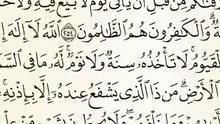 مِّن قَبْلِ أَن يَأْتِىَ يَوْمٌ لَّا بَيْعٌ فِيهِ وَلَا
وَٱلْكَـٰفِرُونَ هُمُ ٱلظَّـٰلِمُونَ ٢٥٤ ٱللَّهُ لَآ إِلَـٰهَ
ٱلْقَيُّومُ لَا تَأْخُذُهُۥ سِنَةٌ وَلَا نَوْمٌ لَّهُۥ مَا فِى
ٱلْأَرْضِ مَن ذَا ٱلَّذِى يَشْفَعُ عِندَهُۥٓ إِلَّا بِإِذْنِهِۦ